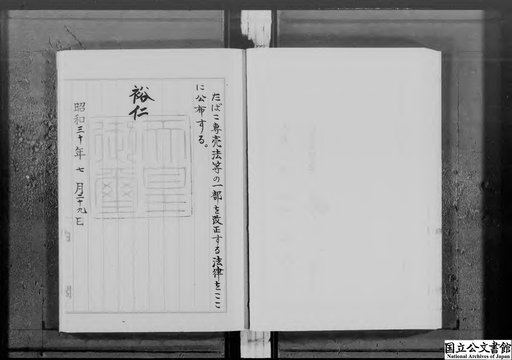 たばこ専売法等の一部を改正する法律をここ
に公布する。
裕仁
天皇
御璽
昭和三十年七月二十九日
国立公文書館
National Archives of Japan